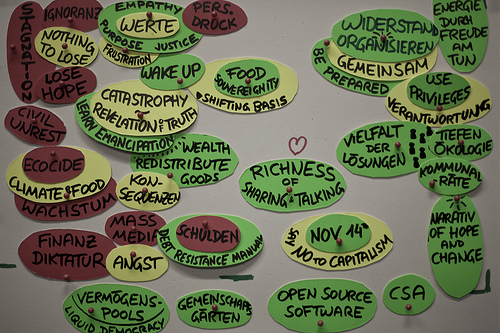 STAGNATION
IGNORANZ
NOTHING
TO LOSE
LOSE
HOPE
EMPATHY
WERTE
PURPOSE JUSTICE
FRUSTRATION
PERS.
DRUCK
WAKE UP
FOOD
SOVEREIGNITY
SHIFTING BASIS
CATASTROPHY
REVELATION OF TRUTH
LEARN EMANCIPATION
WIDERSTAND
ORGANISIEREN
GEMEINSAM
BE PREPARED
ENERGIE
DURCH
FREUDE
AM
TUN
USE
PRIVILEGES
VERANTWORTUNG
CIVIL
UNREST
ECOCIDE
CLIMATE & FOOD
WACHSTUM
WEALTH
REDISTRIBUTE
GOODS
KON-
SEQUENZEN
RICHNESS
OF
SHARING & TALKING
VIELFALT
DER
LÖSUNGEN
TIEFEN
ÖKOLOGIE
KOMMUNAL
RÄTE
NARRATIV
OF HOPE
AND
CHANGE
FINANZ
DIKTATUR
MASS
MEDIA
ANGST
SCHULDEN
DEBT RESISTANCE MANUAL
NOV 14th
SAY NO TO CAPITALISM
VERMÖGENS-
POOLS
LIQUID DEMOCRACY
GEMEINSCHAFTS
GÄRTEN
OPEN SOURCE
SOFTWARE
CSA